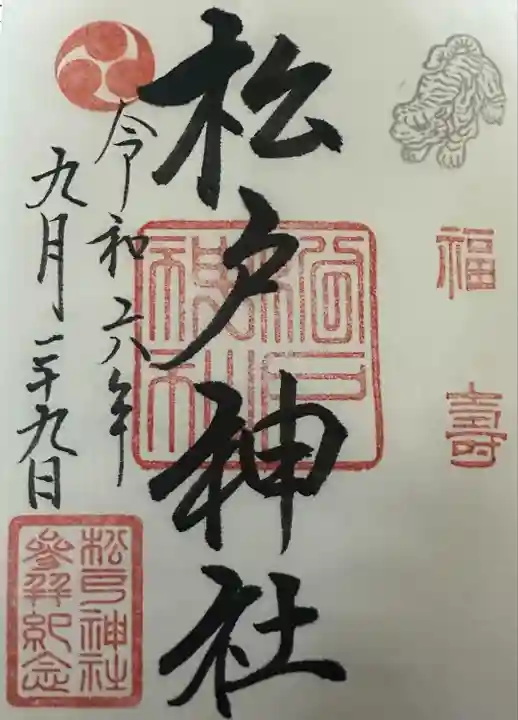 福壽
松戸神社
松戸神社
令和六年
九月二十九日
松戸神社
參拜紀念